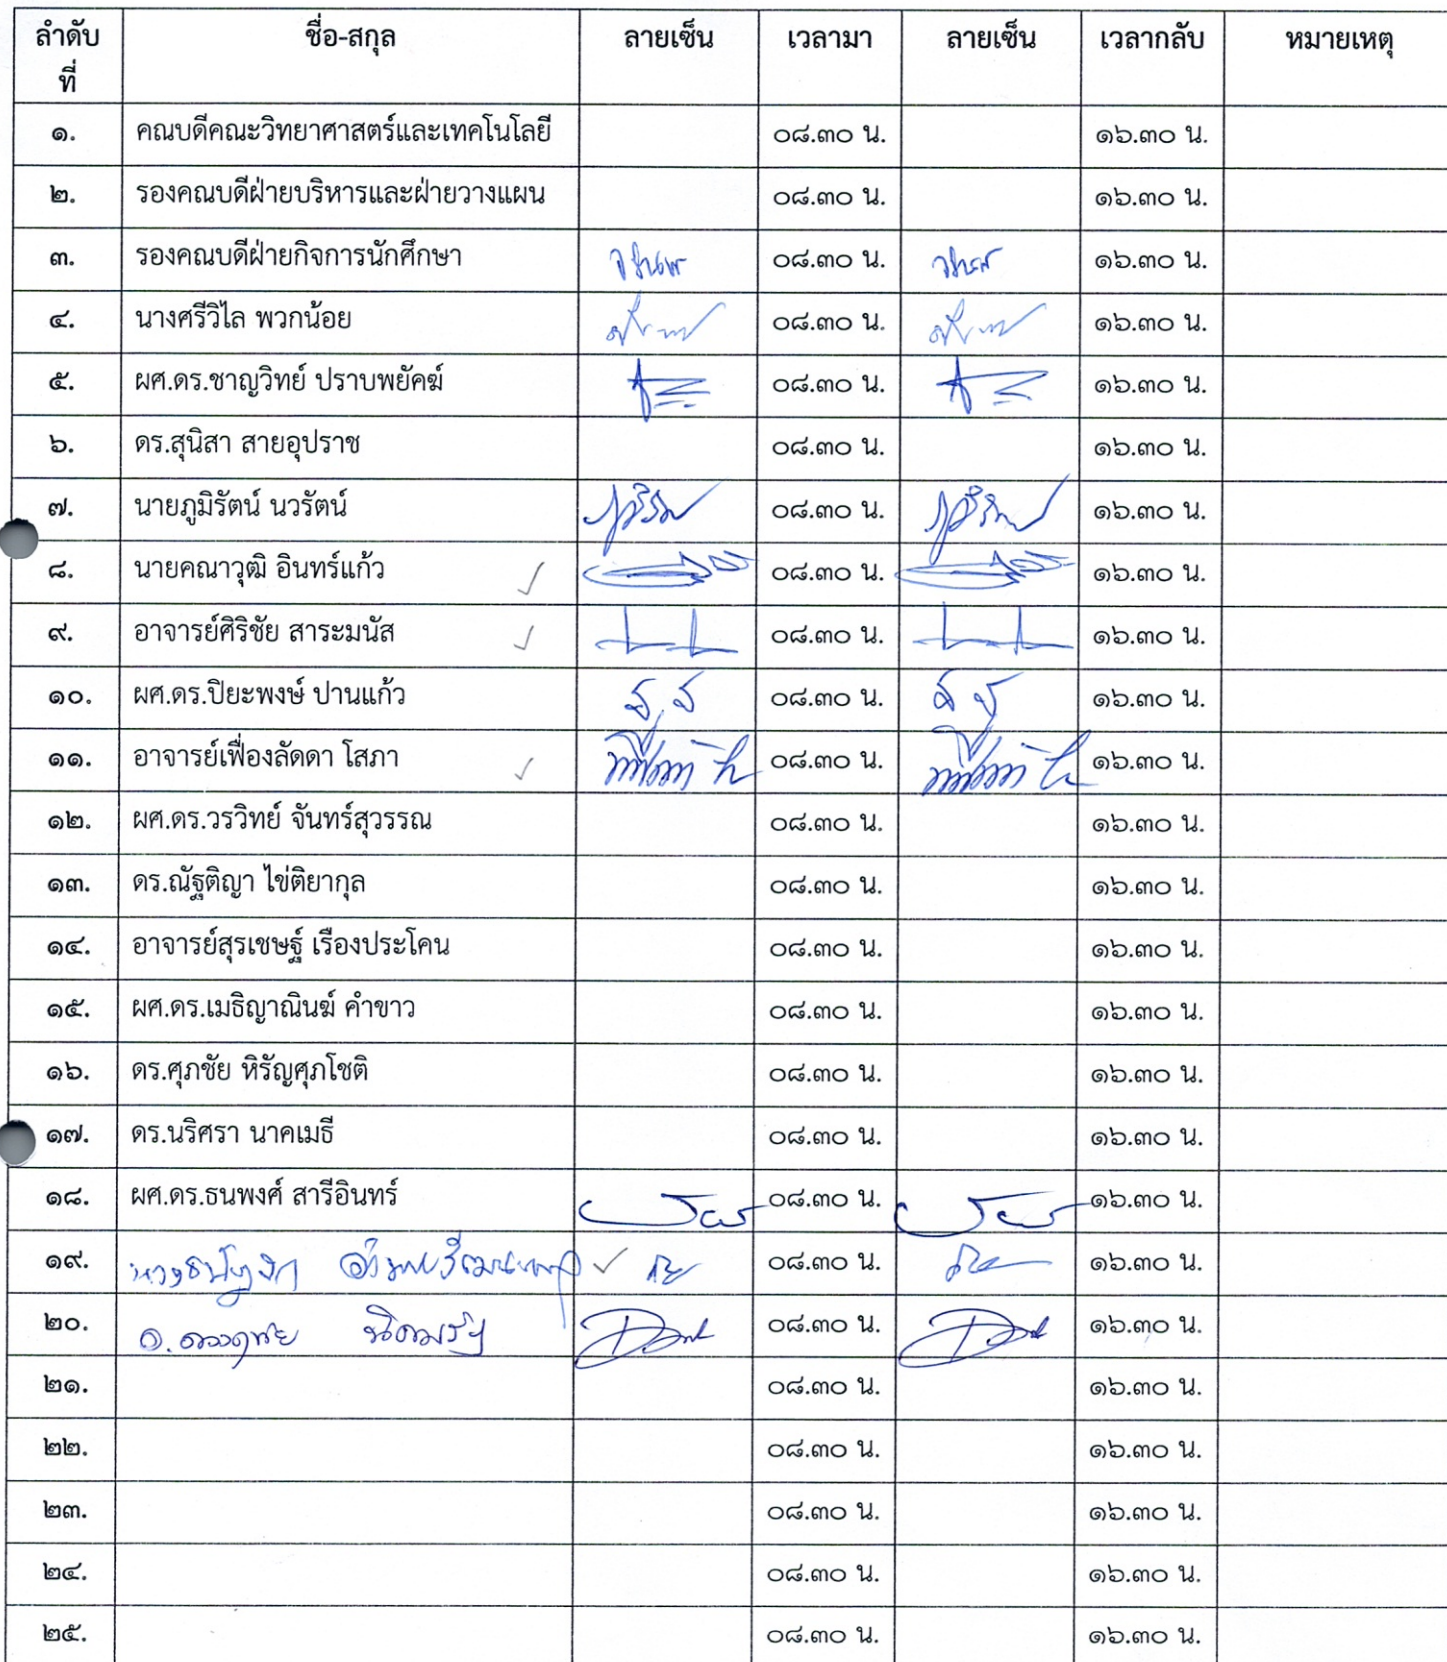 ลำดับที่ ชื่อ-สกุล ลายเซ็น เวลามา ลายเซ็น เวลากลับ หมายเหตุ
๑. คณบดีคณะวิทยาศาสตร์และเทคโนโลยี ๐๘.๓๐ น. ๑๖.๓๐ น.
๒. รองคณบดีฝ่ายบริหารและฝ่ายวางแผน ๐๘.๓๐ น. ๑๖.๓๐ น.
๓. รองคณบดีฝ่ายกิจการนักศึกษา ๐๘.๓๐ น. ๑๖.๓๐ น.
๔. นางศรีวิไล พวกน้อย ๐๘.๓๐ น. ๑๖.๓๐ น.
๕. ผศ.ดร.ชาญวิทย์ ปราบพยัคฆ์ ๐๘.๓๐ น. ๑๖.๓๐ น.
๖. ดร.สุนิสา สายอุปราช ๐๘.๓๐ น. ๑๖.๓๐ น.
๗. นายภูมิรัตน์ นวรัตน์ ๐๘.๓๐ น. ๑๖.๓๐ น.
๘. นายคณาวุฒิ อินทร์แก้ว ๐๘.๓๐ น. ๑๖.๓๐ น.
๙. อาจารย์ศิริชัย สาระมนัส ๐๘.๓๐ น. ๑๖.๓๐ น.
๑๐. ผศ.ดร.ปิยะพงษ์ ปานแก้ว ๐๘.๓๐ น. ๑๖.๓๐ น.
๑๑. อาจารย์เฟื่องลัดดา โสภา ๐๘.๓๐ น. ๑๖.๓๐ น.
๑๒. ผศ.ดร.วรวิทย์ จันทร์สุวรรณ ๐๘.๓๐ น. ๑๖.๓๐ น.
๑๓. ดร.ณัฐติญา ไข่ติยากุล ๐๘.๓๐ น. ๑๖.๓๐ น.
๑๔. อาจารย์สุรเชษฐ์ เรืองประโคน ๐๘.๓๐ น. ๑๖.๓๐ น.
๑๕. ผศ.ดร.เมธิญาณินฆ์ คำขาว ๐๘.๓๐ น. ๑๖.๓๐ น.
๑๖. ดร.ศุภชัย หิรัญศุภโชติ ๐๘.๓๐ น. ๑๖.๓๐ น.
๑๗. ดร.นริศรา นาคเมธี ๐๘.๓๐ น. ๑๖.๓๐ น.
๑๘. ผศ.ดร.ธนพงศ์ สารีอินทร์ ๐๘.๓๐ น. ๑๖.๓๐ น.
๑๙. ๐๘.๓๐ น. ๑๖.๓๐ น.
๒๐. ๐๘.๓๐ น. ๑๖.๓๐ น.
๒๑. ๐๘.๓๐ น. ๑๖.๓๐ น.
๒๒. ๐๘.๓๐ น. ๑๖.๓๐ น.
๒๓. ๐๘.๓๐ น. ๑๖.๓๐ น.
๒๔. ๐๘.๓๐ น. ๑๖.๓๐ น.
๒๕. ๐๘.๓๐ น. ๑๖.๓๐ น.